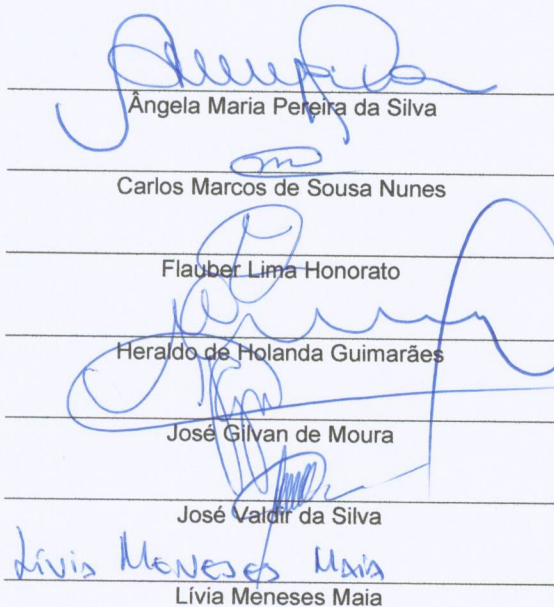 Ângela Maria Pereira da Silva
Carlos Marcos de Sousa Nunes
Flauber Lima Honorato
Heraldo de Holanda Guimarães
José Gilvan de Moura
José Valdir da Silva
Lívia Meneses Maia
Lívia Meneses Maia